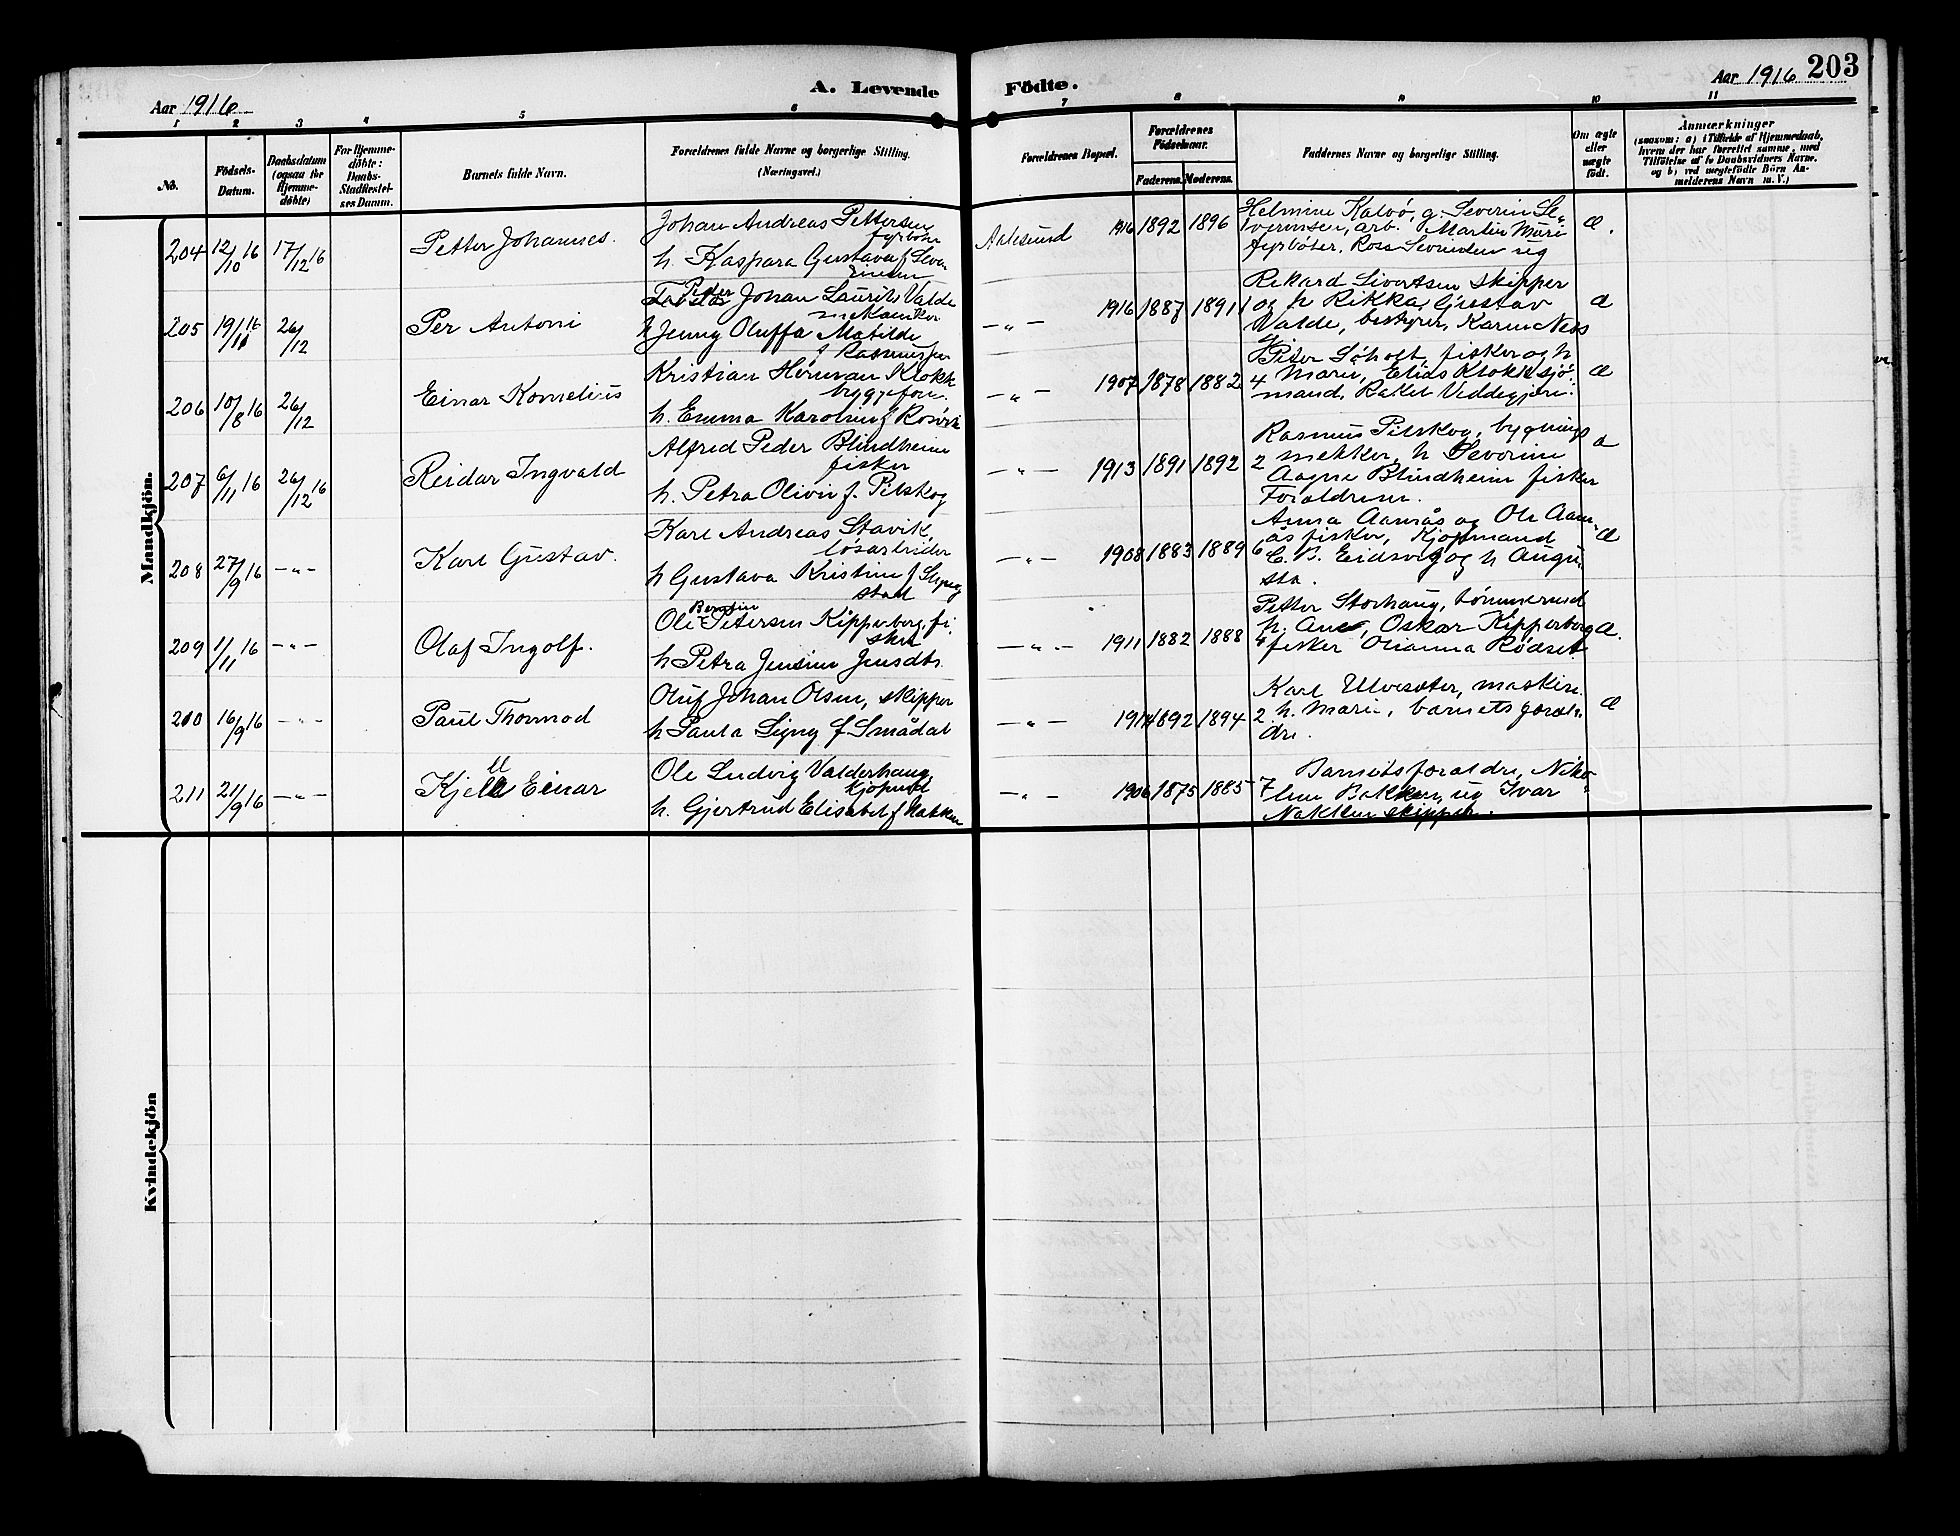 Aar 1916
A. Levende
Födte.
Aar 1916
203
1 2 3 4 5 6 7 8 9 10 11
No.
Födsels-
Datum.
Daabsdatum
(ogsaa for
Hjemme-
döbte)
For Hjemme-
döbte:
Daabs-
Stadfæstel-
ses Datum.
Barnets fulde Navn.
Forældrenes fulde Navne og borgerlige Stilling.
(Næringsvei.)
Forældrenes Bopæl.
Forældrenes
Födselsaar.
Faderens. Moderens.
Faddernes Navne og borgerlige Stilling.
Om ægte
eller
uægte
født.
Anmærkninger
(saasom: a) i Tilfælde af Hjemmedaab,
hvem der har forrettet samme, med
Tilföielse af to Daabsvidners Navne,
og b) ved uægtefödte Börn An-
melderens Navn m. V.)
Mandkjöm.
204 12/10 16 17/12 16 Petter Johannes.
Johan Andreas Pettersen
fyrbøter
h. Kaspara Gustava f. Seve
rinsen
Aalesund 1916 1892 1896
Helmine Kalvø, g. Severin Se-
verinsen, arb. Martin Møre
fyrbøter, Rosa Sevrinsen ug
Æ.
205 19/11 16 26/12 Per Antoni
Peder Johan Laurits Valde
mekaniker
h Jenny Oluffa Matilde
f Rasmussen
— „ — 1916 1887 1891 1
Rikard Sivertsen skipper
og h Rikka, Gustav
Valde, bestyrer, Karen Ness
Æ
206 10/8 16 26/12 Einar Kornelius
Kristian Herman Klokk
byggefor.
h. Emma Karoline f Rosvik
— „ — 1907 1878 1882 4
Peter Søholt, fisker og h
Marie, Elias Klokk sjø-
mand, Rakel Veddegjerde.
Æ
207 6/11 16 26/12 16 Reidar Ingvald
Alfred Peder Blindheim
fisker
h. Petra Olivie f. Pilskog
— „ — 1913 1891 1892 2
Rasmus Pilskog, bygnings
snekker, h Severine
Aagne Blindheim fisker
Forældrene.
Æ
208 27/9 16 — „ — Karl Gustav.
Karl Andreas Stavik,
løsarbeider
h Gustava Kristine f
stad
— „ — 1908 1883 1889 6
Anna Aamås og Ole Aam-
ås fisker, Kjøpmand
E. B. Eidsvig og h Augu-
sta.
Æ
209 1/11 16 — „ — Olaf Ingolf.
Ole Berntin Petersen Kipperberg, fi-
sker
h Petra Jensine Jensdtr
— „ — 1911 1882 1888 4
Petter Storhaug, tømmermd
h. Ane, Oskar Kipperberg
fisker Olianna Rødset.
Æ.
210 16/9 16 — „ — Paul Thormod
Oluf Johan Olsen, skipper
h Paula Signy f Smådal
— „ — 1914 1892 1894 2
Karl Ulvesæter, maskin.
h. Marie, barnets foræl-
dre.
Æ
211 21/9 16 — „ — Kjell Einar
Ole Ludvig Valderhaug,
kjøpmd
h. Gjertrud Elisabet f Nakken
— „ — 1906 1875 1885 7
Barnets forældre, Niko-
line Bakken, ug Ivar
Nakken skipper.
Kvindekjön